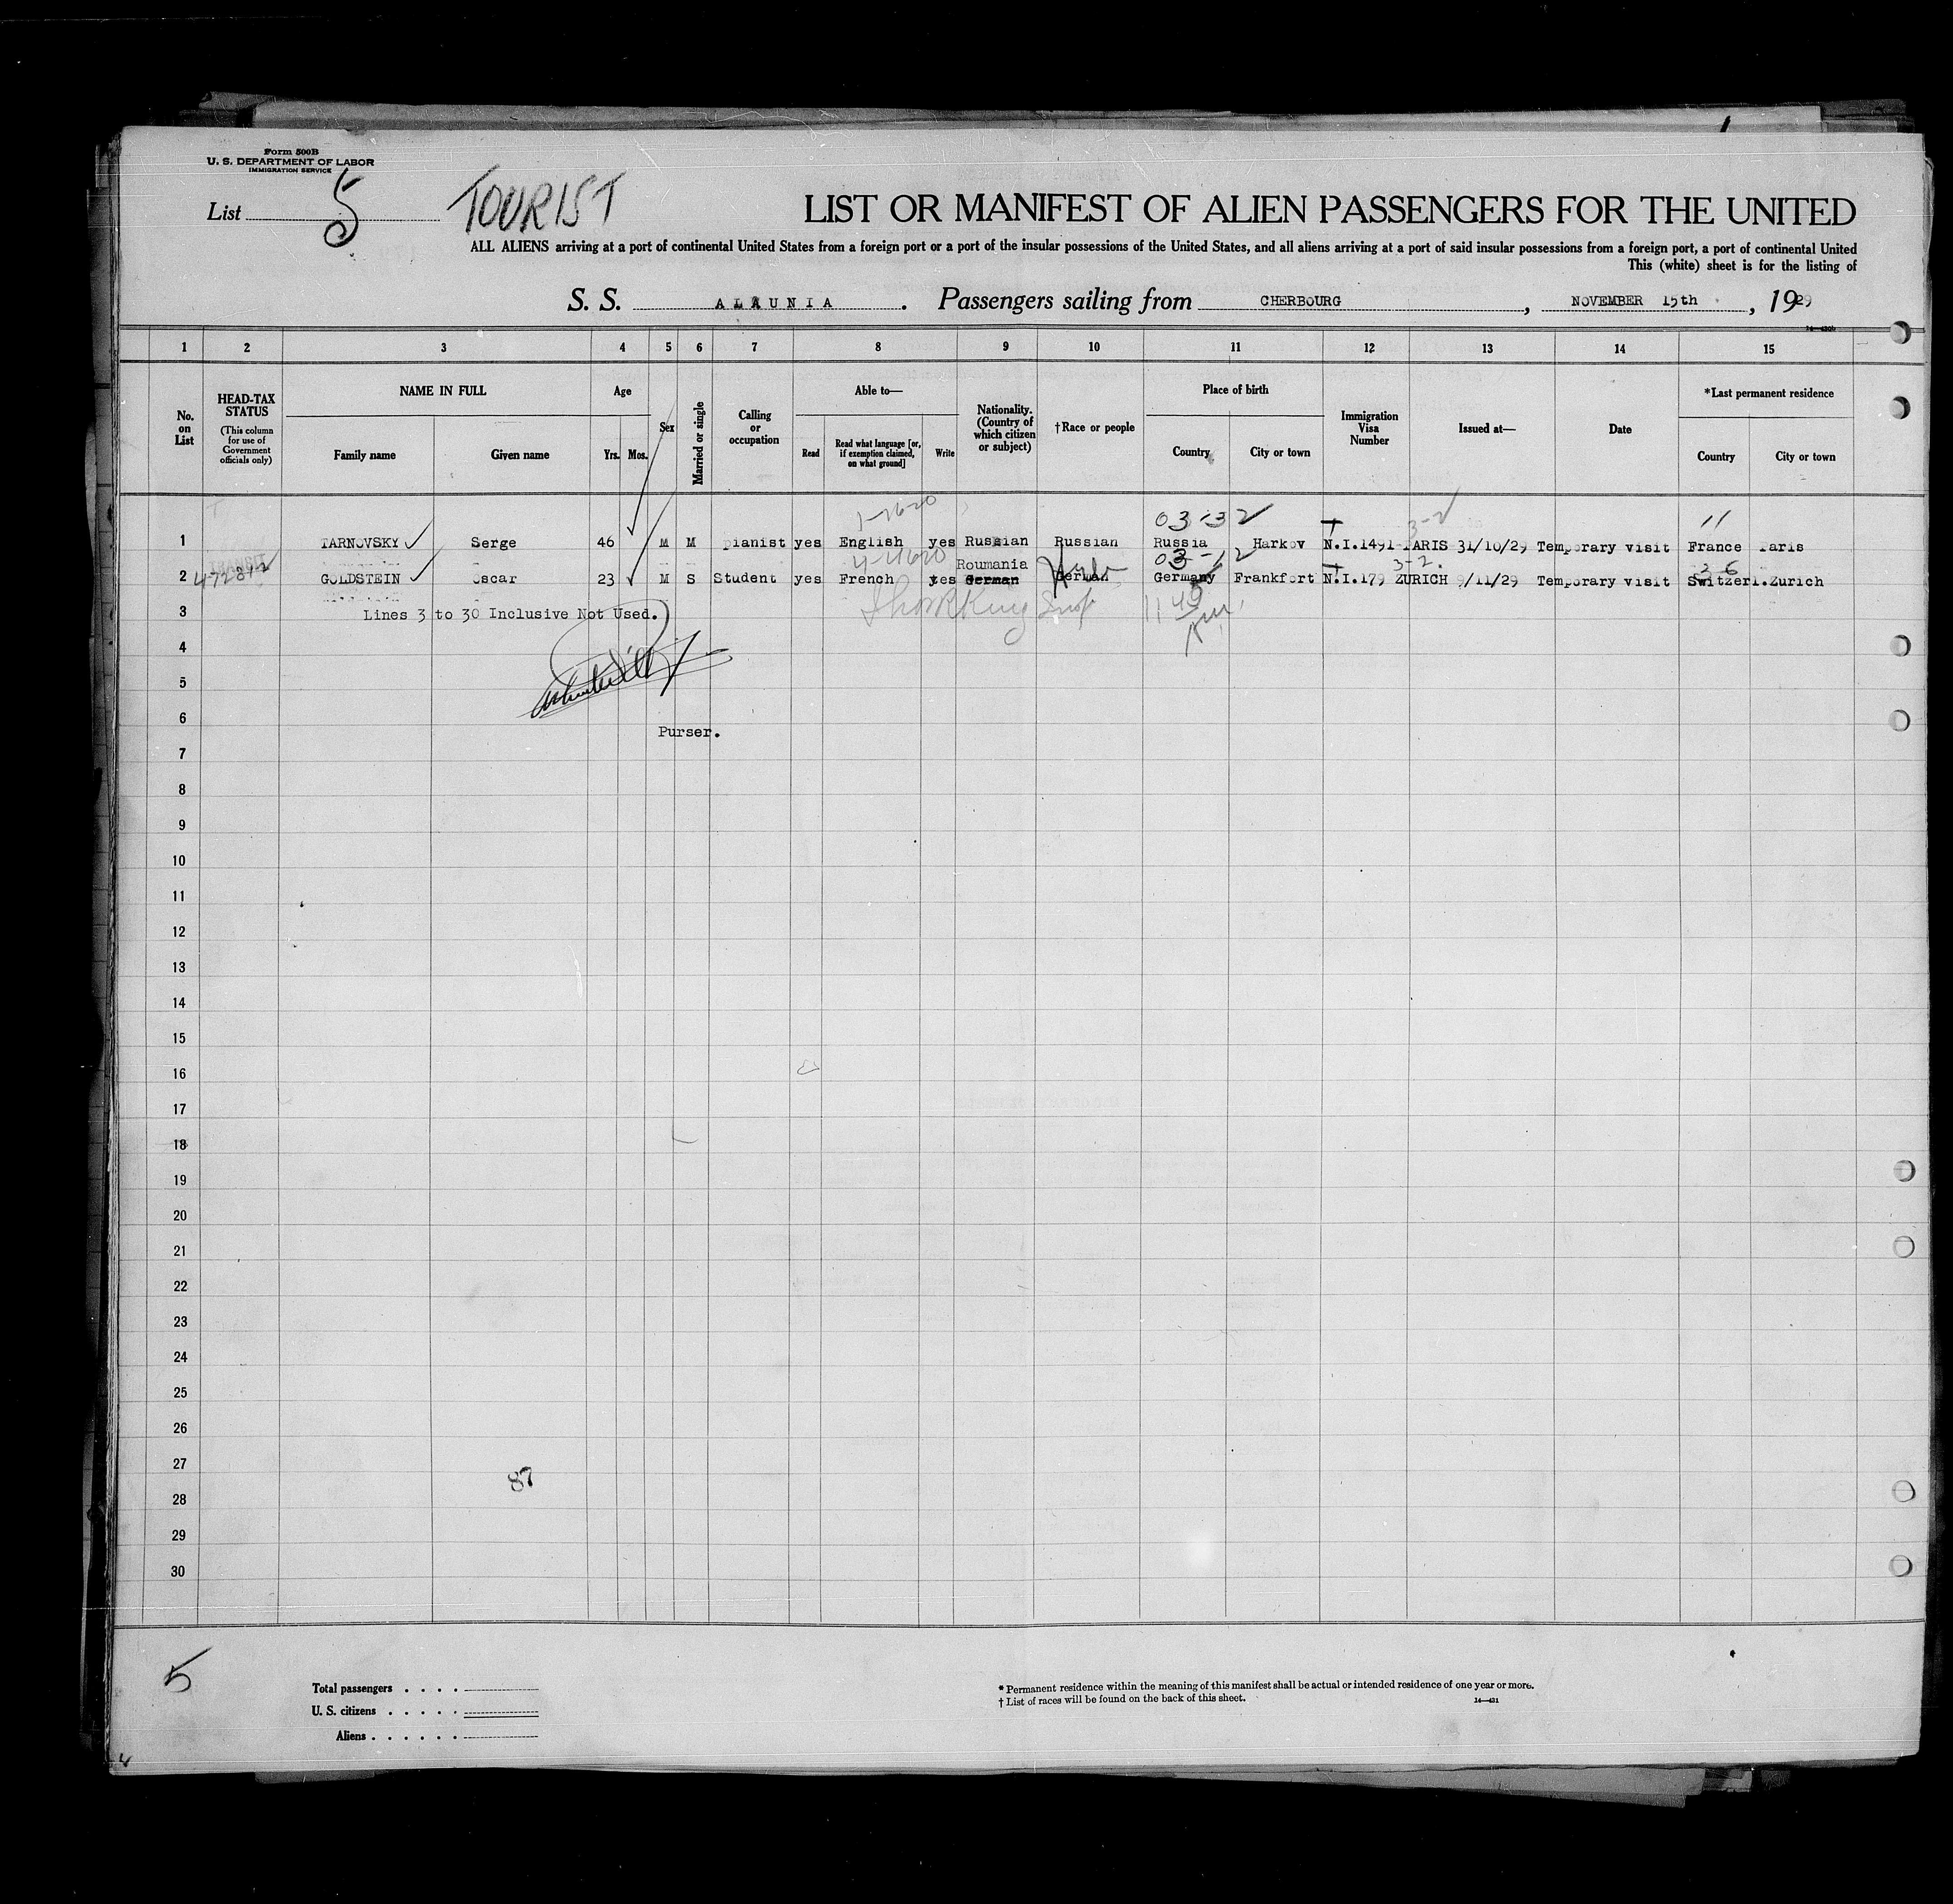 Form 500B
U. S. DEPARTMENT OF LABOR
IMMIGRATION SERVICE
List 5
TOURIST
LIST OR MANIFEST OF ALIEN PASSENGERS FOR THE UNITED
ALL ALIENS arriving at a port of continental United States from a foreign port or a port of the insular possessions of the United States, and all aliens arriving at a port of said insular possessions from a foreign port, a port of continental United
This (white) sheet is for the listing of
S. S. ALAUNIA. Passengers sailing from CHERBOURG, NOVEMBER 15th, 1929
1 2 3 4 5 6 7 8 9 10 11 12 13 14 15
No. on List
HEAD-TAX STATUS
(This column for use of Government officials only)
NAME IN FULL
Family name
Given name
Age
Yrs. Mos.
Sex
Married or single
Calling or occupation
Able to—
Read
Read what language [or, if exemption claimed, on what ground]
Write
Nationality. (Country of which citizen or subject)
†Race or people
Place of birth
Country
City or town
Immigration Visa Number
Issued at—
Date
*Last permanent residence
Country
City or town
03-32 3-2 11
1 TARNOVSKY Serge 46 M M pianist yes English yes Russian Russian Russia Harkov N.I.1491 PARIS 31/10/29 Temporary visit France Paris
Roumania 3-2. 36
2 GOLDSTEIN Oscar 23 M S Student yes French yes German German Germany Frankfort N.I.179 ZURICH 9/11/29 Temporary visit Switzerl. Zurich
3 Lines 3 to 30 Inclusive Not Used.
4
5
6
Purser.
7
8
9
10
11
12
13
14
15
16
17
18
19
20
21
22
23
24
25
26
27
87
28
29
30
5
Total passengers
U. S. citizens
Aliens
* Permanent residence within the meaning of this manifest shall be actual or intended residence of one year or more.
† List of races will be found on the back of this sheet.
14—421